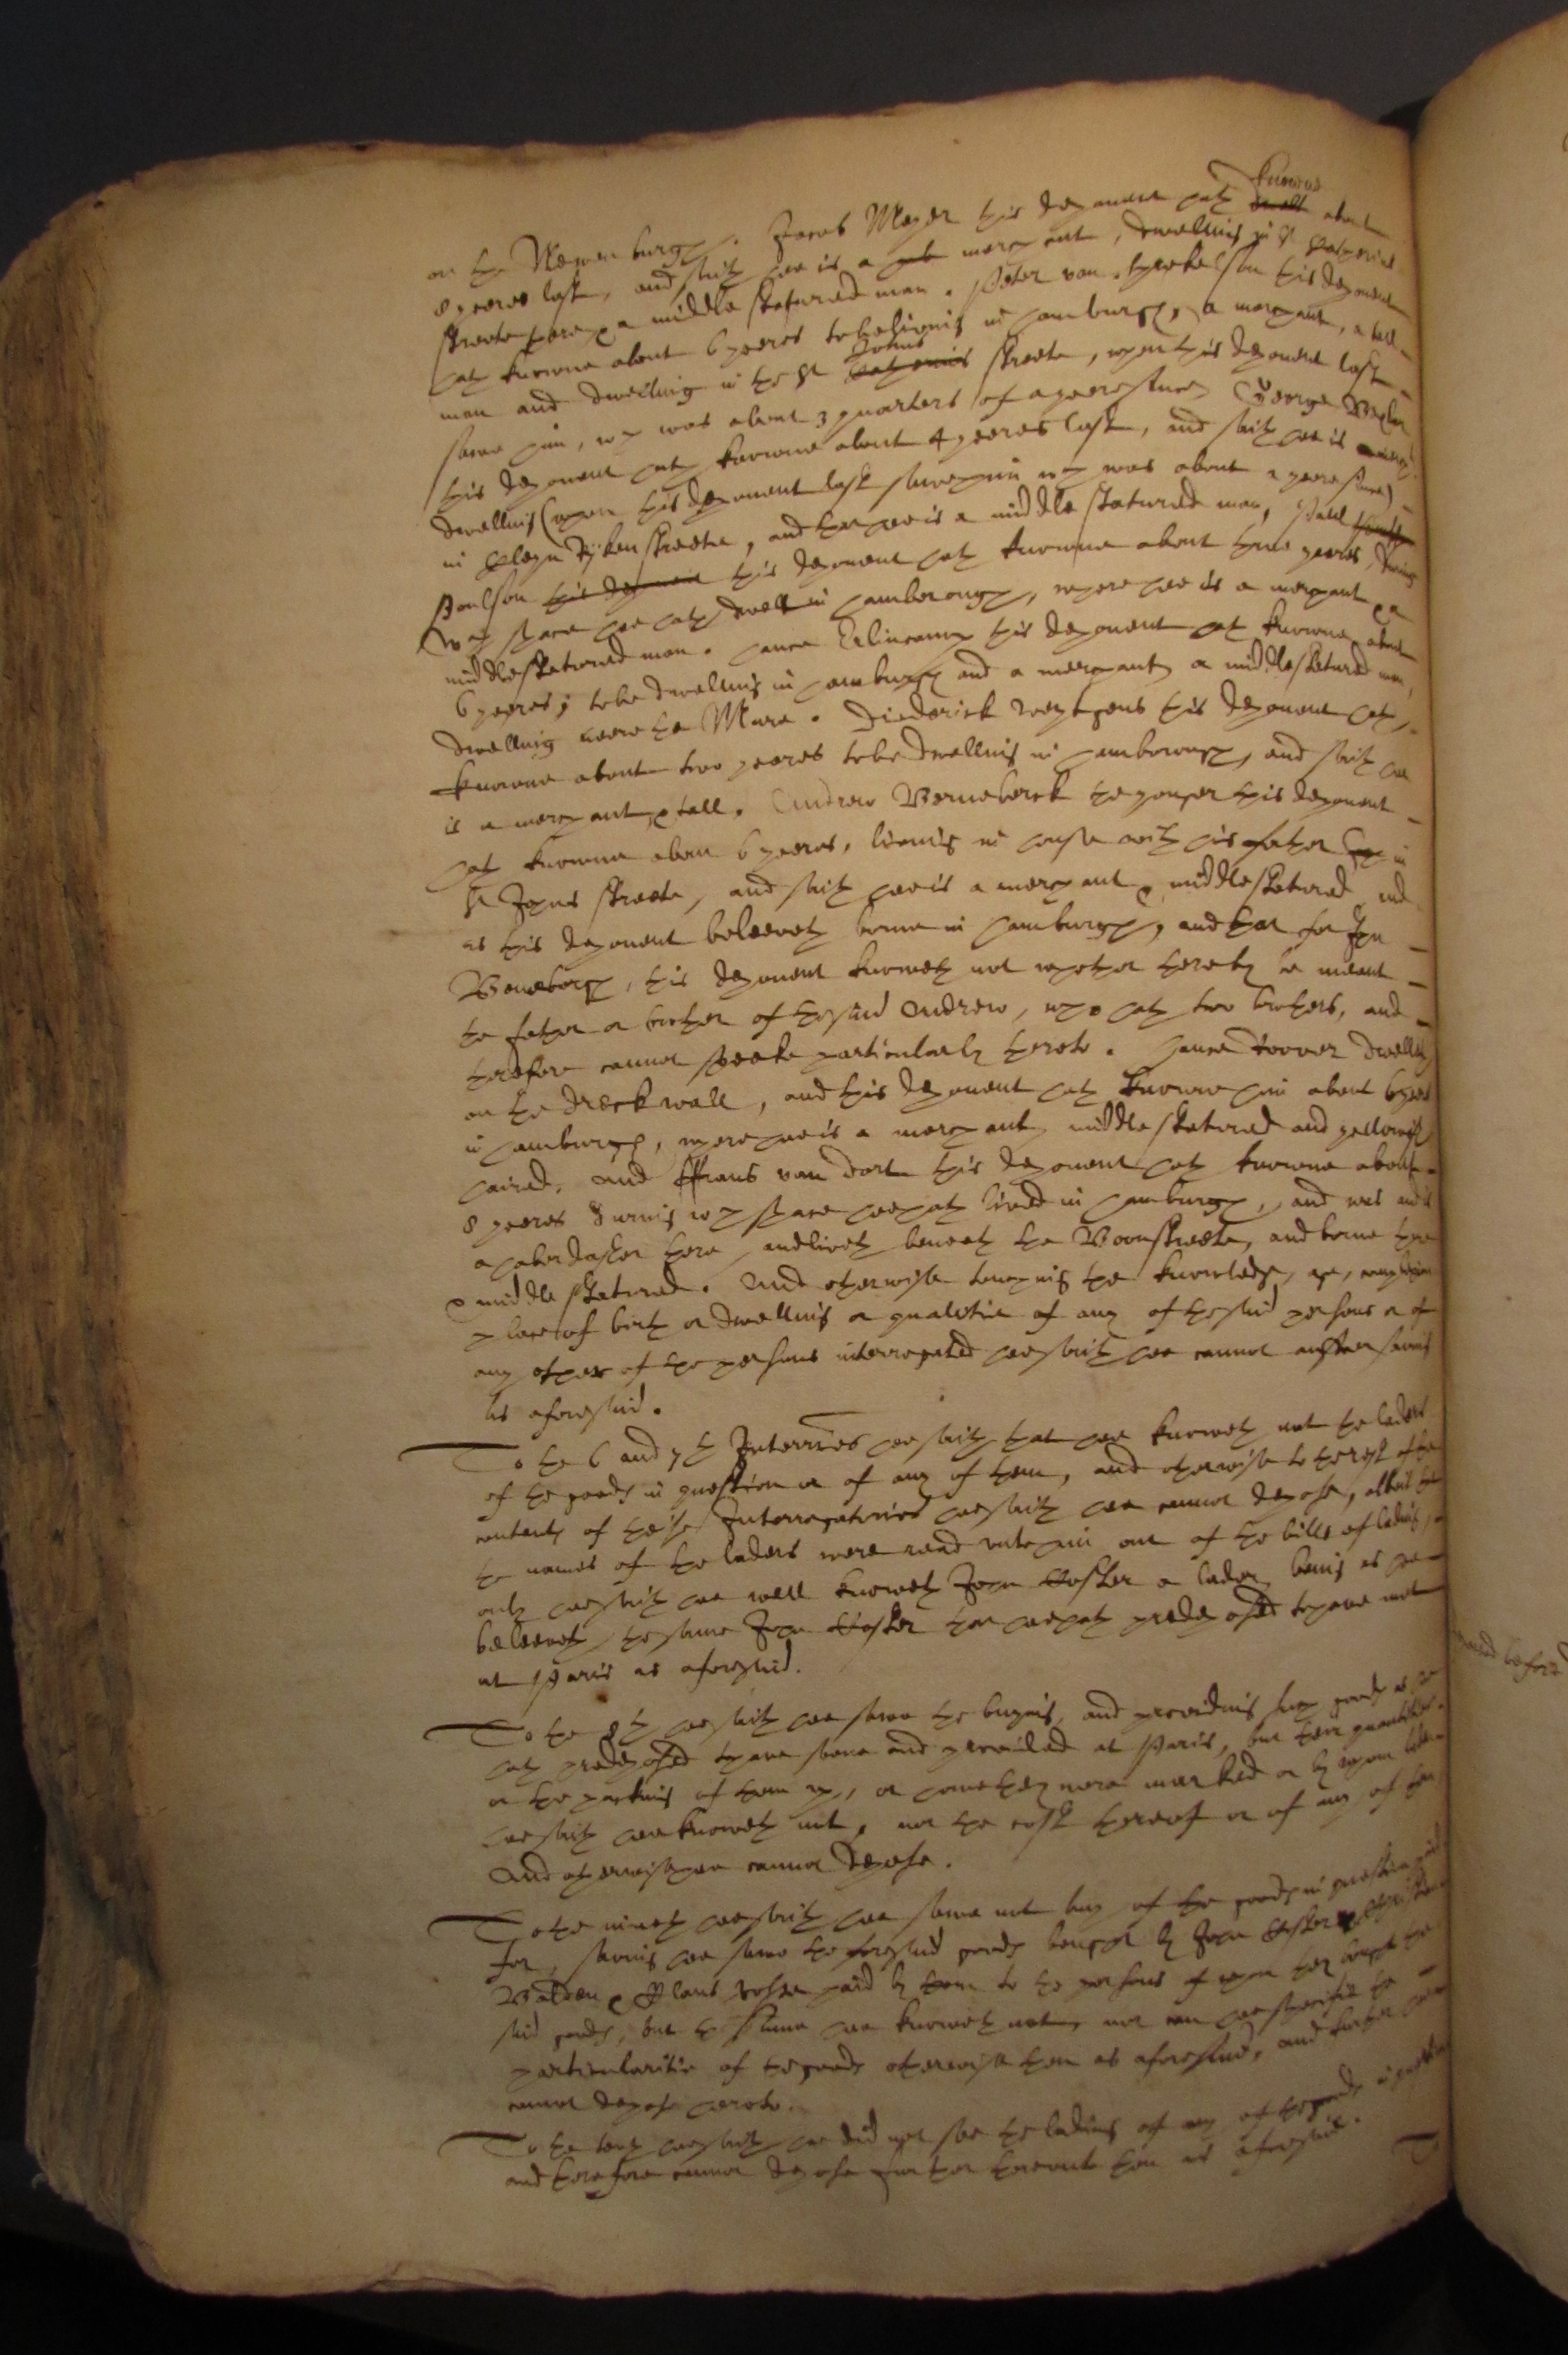 knowne
on the Newen burgh. Jacob Meyer this deponent hath dwelt about
8 yeeres last, and saith hee is a merchant, dwelling in St Katherins
streete there, a middle statured man. Peter van Spreckelson this deponent
hath knowne about 6 yeeres to be living in hamburgh, a merchant, a tall
Johns
man and dwelling in the St Katherins streete, when this deponent last
sawe him, wch was about 3 quarters of a yeere since, George
this deponent hath knowne about 4 yeeres last, and saith hee is
dwelling (when this deponent last sawe him wch was about a yeere since)
in streete, and that hee is a middle statured man, Paul
Poulson this deponent this deponent hath knowne about three yeeres, during
wch space hee hath dwelt in hamborough, where hee is a merchant, a
middle statured man. hance this deponent hath knowne about
6 yeeres, to be dwelling in hamburgh and a merchant, a middle statured man,
dwelling neere the Mure. Diederick this deponent hath
knowne about two yeeres to be dwelling in hambourgh, and saith hee
is a merchant, tall. Andrew Berneberck the yonger this deponent
hath knowne about 6 yeeres, living in house with his father in
St Johns streete, and saith hee is a merchant, middle statured and
as this deponent beleeveth borne in hamburgh, and that for John
Berneberg, this deponent knoweth not whether thereby be meant
the father or brother of the said Andrew, who hath two brothers, and
therefore cannot speake particularly thereto. hance dwelleth
on the dreckwall, and this deponent hath knowne him about 6 yeeres
in hamburgh, where hee is a merchant, middle statured and yellowish
haired, and Frans van Dort this deponent hath knowne about
8 yeeres during wch space hee hath lived in hamburgh, and was and is
a haberdasher there, and liveth beneath the streete, and borne there
middle statured. And otherwise touching the knowledge, age,
place of birth or dwelling or qualitie of any of the said persons or of
any other of the persons interrogated hee saith hee cannot answer saving
as aforesaid.
To the 6 and 7th Interries hee saith that hee knoweth not the laders
of the goods in question or of any of them, and otherwise to the rest of the
contents of theise Interrogatories hee saith hee cannot depose, albeit that
the names of the laders were read unto him out of the bills of lading,
only hee saith hee well knoweth John a lader, being as hee
beleeveth the same John that hee hath predeposed to have met
at Paris as aforesaid.
To the 8th hee saith hee sawe the buying and providing such goods as hee
hath predeposed to have seene and provided at Paris, but their quantities
or the packing of them up, or howe they were marked or by whom
hee saith hee knoweth not, nor the cost thereof or of any of them
And otherwise hee cannot depose.
To the nineth hee saith hee sawe not any of the goods in question paid
for, saving hee sawe the foresaid goods bought by John
paid by them to the persons of whom they bought the
said goods, but the summe hee knoweth not, nor can hee specifie the
particularitie of the goods otherwise then as aforesaid, and further hee
cannot depose hereto.
To the tenth hee saith hee did not see the lading of any of the goods in question
and therefore cannot depose further hereunto then as aforesaid.
To